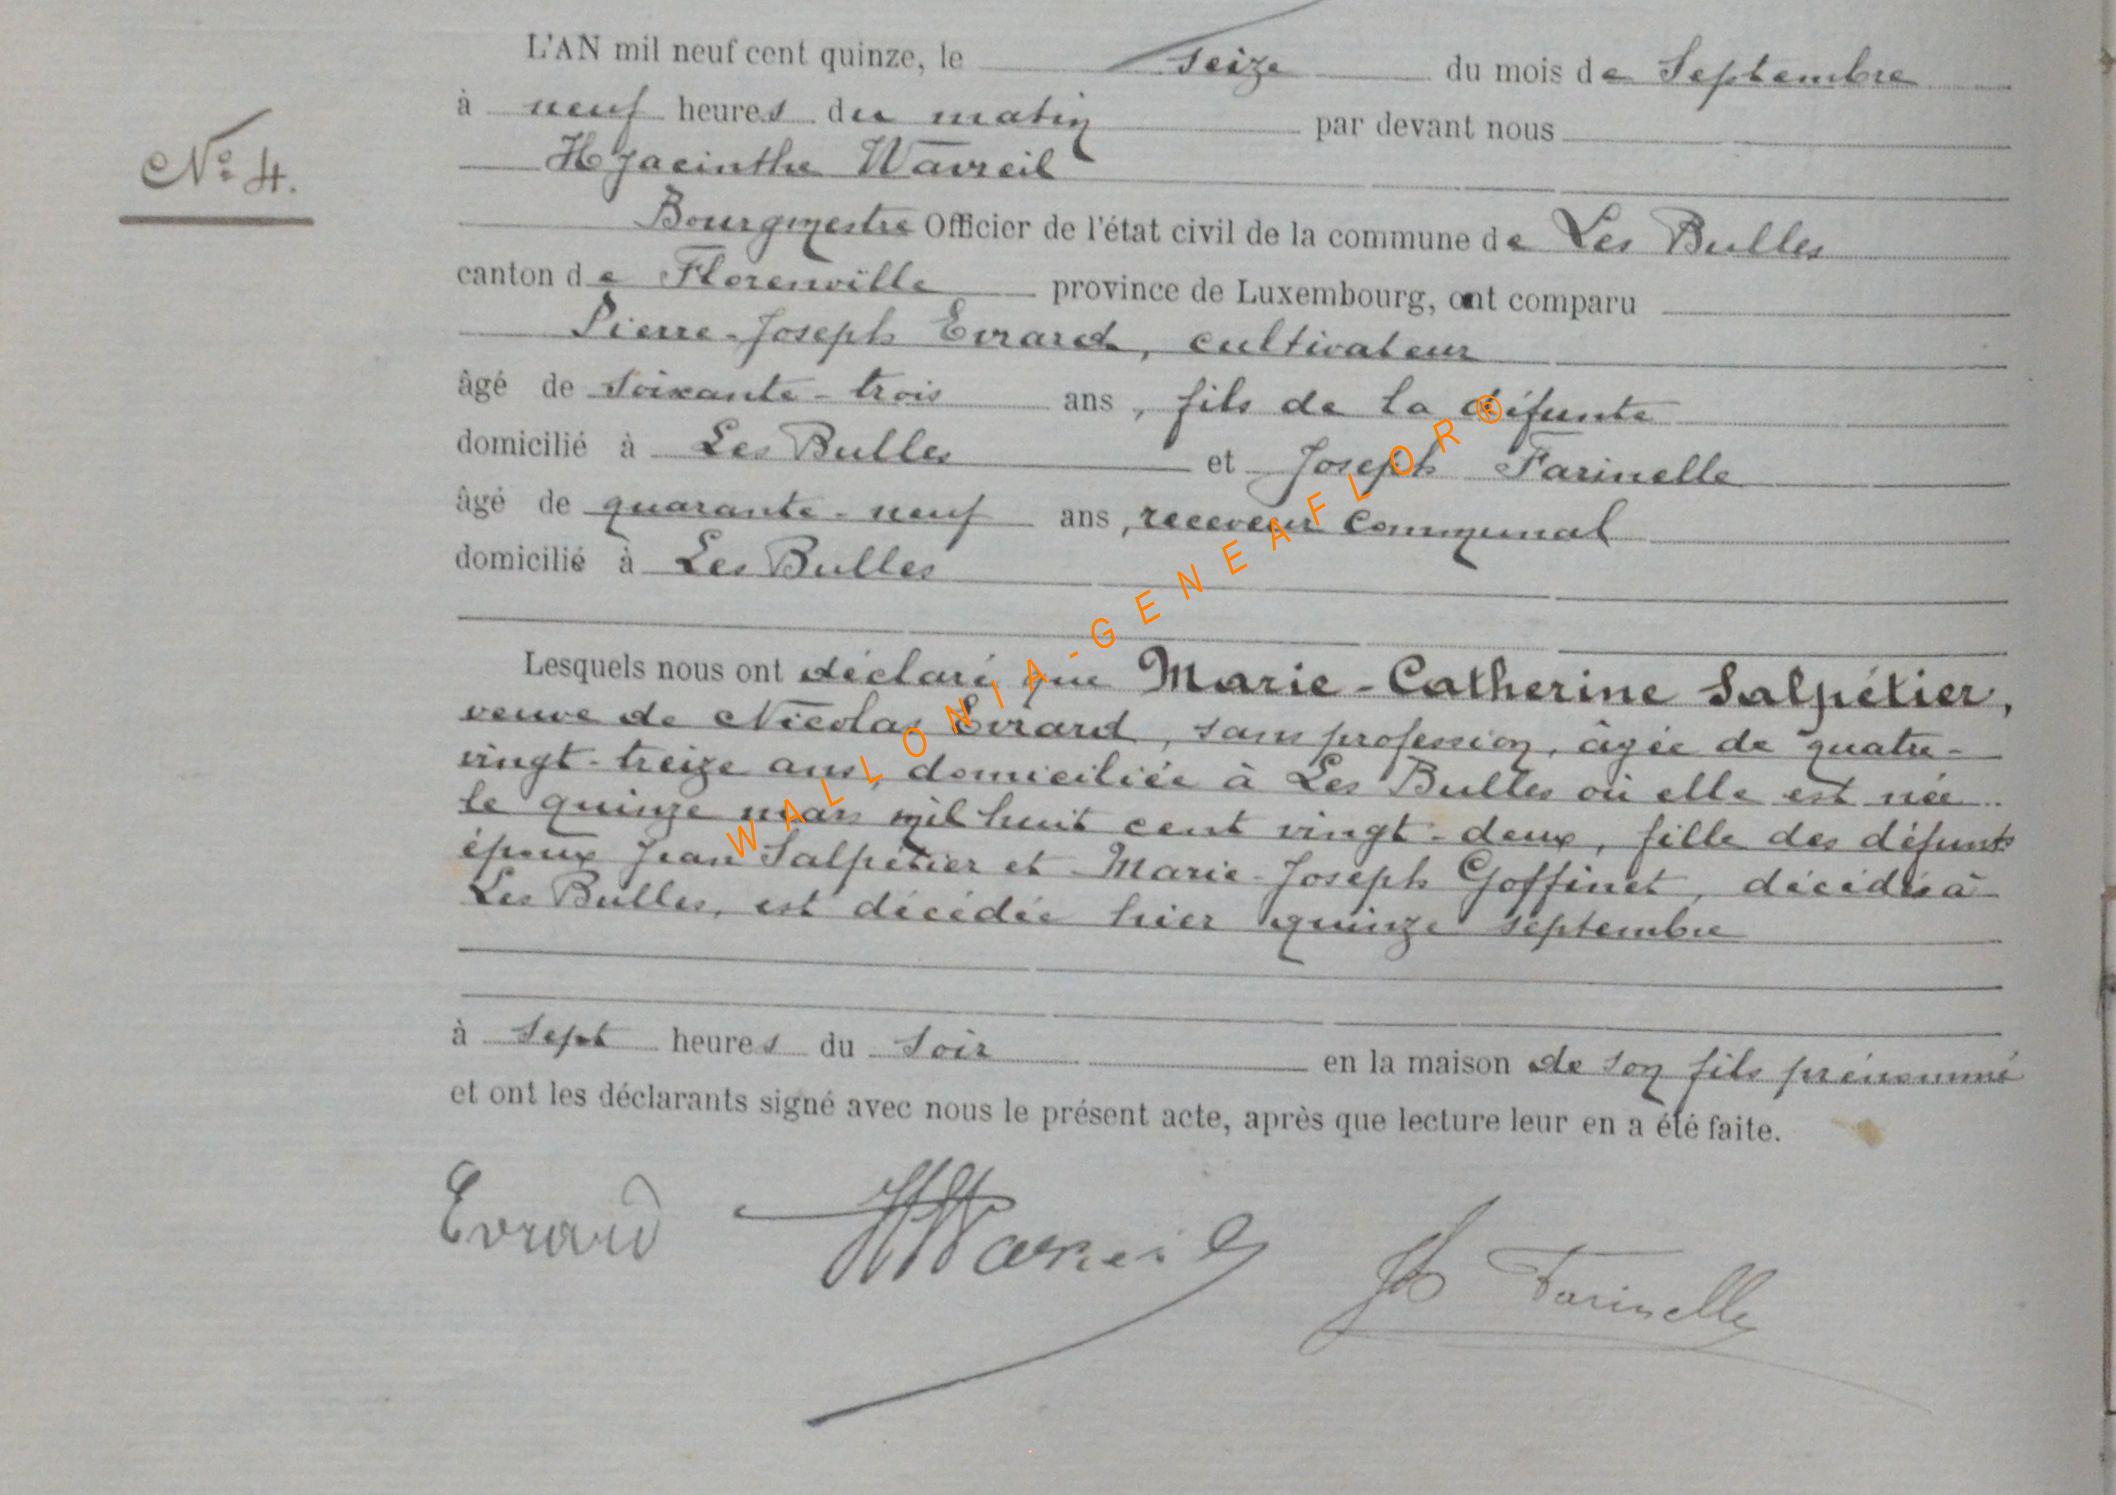 L'AN mil neuf cent quinze, le seize du mois de Septembre
à neuf heures du matin par devant nous
Nº 4.
Hyacinthe Wavreil
Bourgmestre Officier de l'état civil de la commune de Les Bulles
canton de Florenville province de Luxembourg, ont comparu
Pierre-Joseph Evrard, cultivateur
âgé de soixante-trois ans, fils de la défunte
domicilié à Les Bulles et Joseph Farinelle
âgé de quarante-neuf ans, receveur communal
domicilié à Les Bulles
Lesquels nous ont déclaré que Marie-Catherine Salpétier,
veuve de Nicolas Evrard, sans profession, âgée de quatre-
vingt-treize ans, domiciliée à Les Bulles où elle est née
le quinze mars mil huit cent vingt-deux, fille des défunts
époux Jean Salpétier et Marie-Joseph Goffinet, décédés à
Les Bulles, est décédée hier quinze septembre
à sept heures du soir en la maison de son fils prénommé
et ont les déclarants signé avec nous le présent acte, après que lecture leur en a été faite.
Evrard HWavreil Jh Farinelle
WALLONIA-GENEAFLOR®